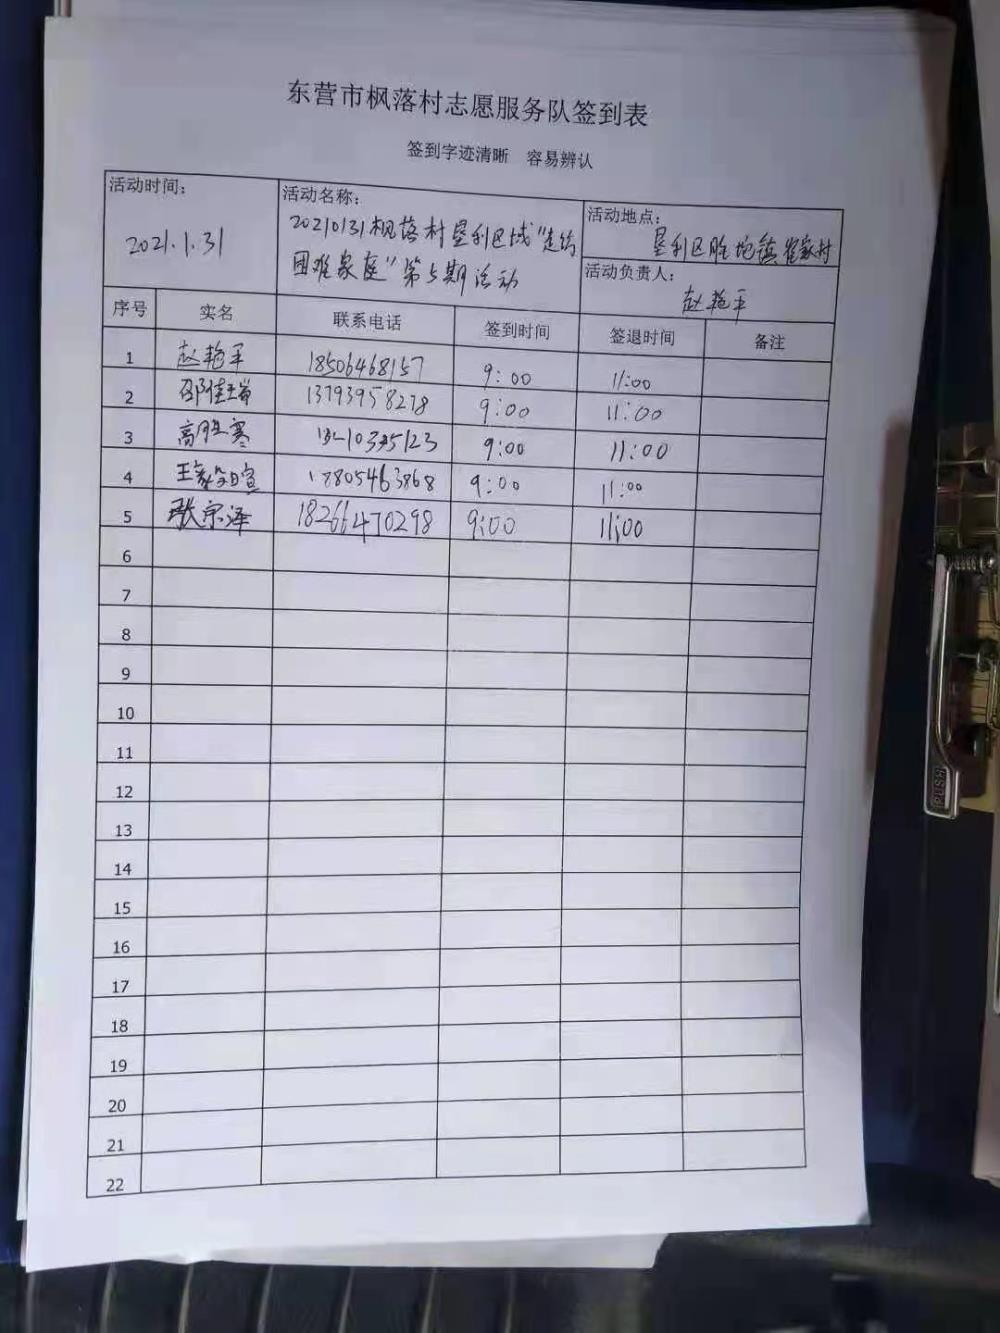 东营市枫落村志愿服务队签到表
签到字迹清晰 容易辨认
活动时间：
2021.1.31
活动名称：
20210131枫落村垦利区域"走访
困难家庭"第5期活动
活动地点：
垦利区胜坨镇崔家村
活动负责人：
赵艳平
序号 实名 联系电话 签到时间 签退时间 备注
1 赵艳平 18506468157 9:00 11:00
2 邵佳 13793958278 9:00 11:00
3 高胜寒 9:00 11:00
4 王 18805463868 9:00 11:00
5 张宗泽 18266470298 9:00 11:00
6
7
8
9
10
11
12
13
14
15
16
17
18
19
20
21
22
PUSH